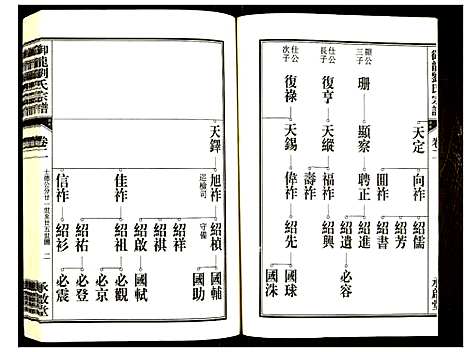 御龍劉氏宗譜
卷二
承啟堂
顯公
三子
珊
顯察
聘正
紹進
紹遺
必容
仕公
長子
復亨
天縱
福祚
紹興
壽祚
仕公
次子
復祿
天錫
偉祚
紹先
國球
國洙
天定
向祚
紹儒
紹芳
圖祚
紹書
御龍劉氏宗譜
卷二
士德公分廿一世至廿五世圖
二
承啟堂
天鐸
巡檢司
旭祚
守備
紹楨
國輔
國助
紹祥
紹祺
紹啟
國軾
佳祚
紹祖
必觀
必京
信祚
紹祐
必登
紹衫
必震